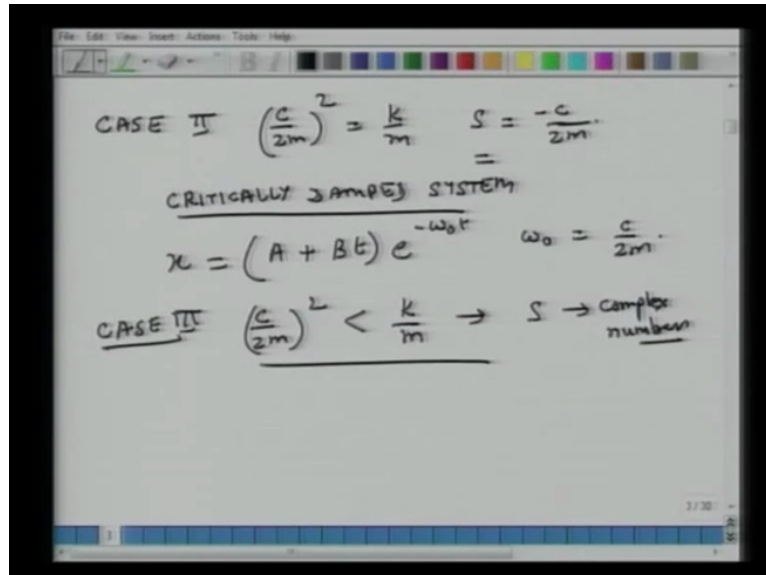 File Edit View Insert Actions Tools Help
CASE II (c/2m)² = k/m S = -c/2m.
=
CRITICALLY DAMPED SYSTEM
x = (A + Bt) e^{-ω₀t} ω₀ = c/2m.
CASE III (c/2m)² < k/m → S → complex
numbers
3/30
3